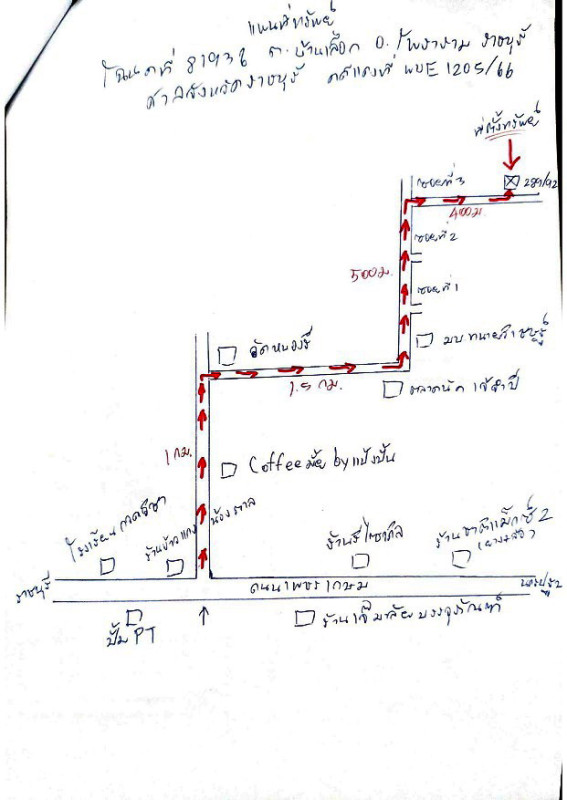 แผนที่ทรัพย์
โฉนดที่ 81936 ต.บ้านเลือก อ.โพธาราม ราชบุรี
ศาลจังหวัดราชบุรี คดีแดงที่ ผบE1205/66
ที่ตั้งทรัพย์
ซอยที่ 3
289/92
400ม.
ซอยที่ 2
500ม.
ซอยที่ 1
วัดหนองรี
1.5 กม.
ตลาดนัด
1 กม.
Coffeeมั้ย byแป้งปั้น
โรงเรียน
ร้านข้าวแกง
น้องตาล
ร้าน
ร้าน 2
ราชบุรี
ถนนเพชรเกษม
นครปฐม
ปั๊ม PT
ร้านเจิมชัยบรรจุภัณฑ์